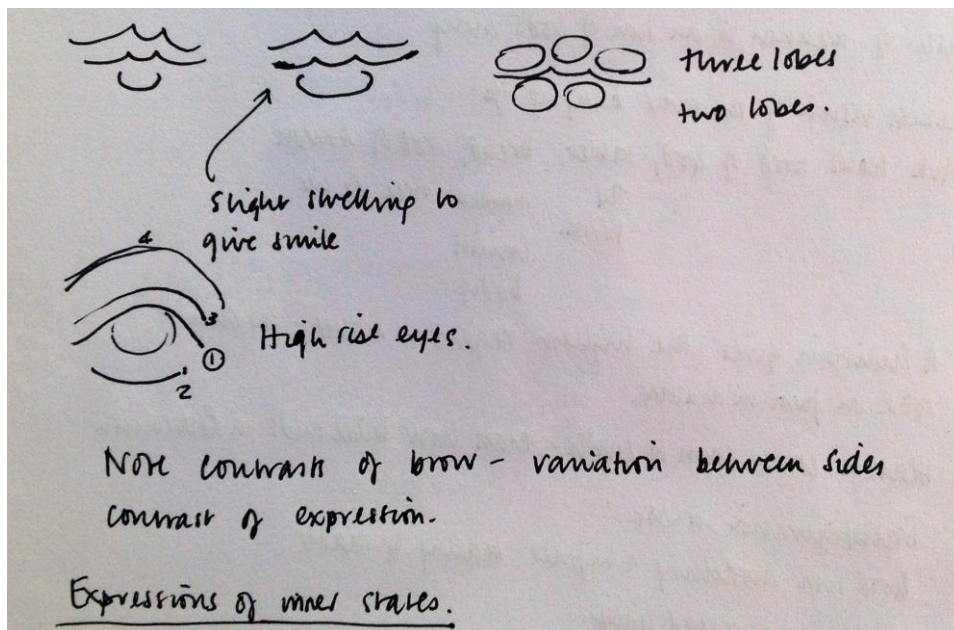 three lobes
two lobes.
slight swelling to
give smile
4
3
High rise eyes
1
2
Note contrast of brow - variation between sides
contrast of expression.
Expressions of inner states.